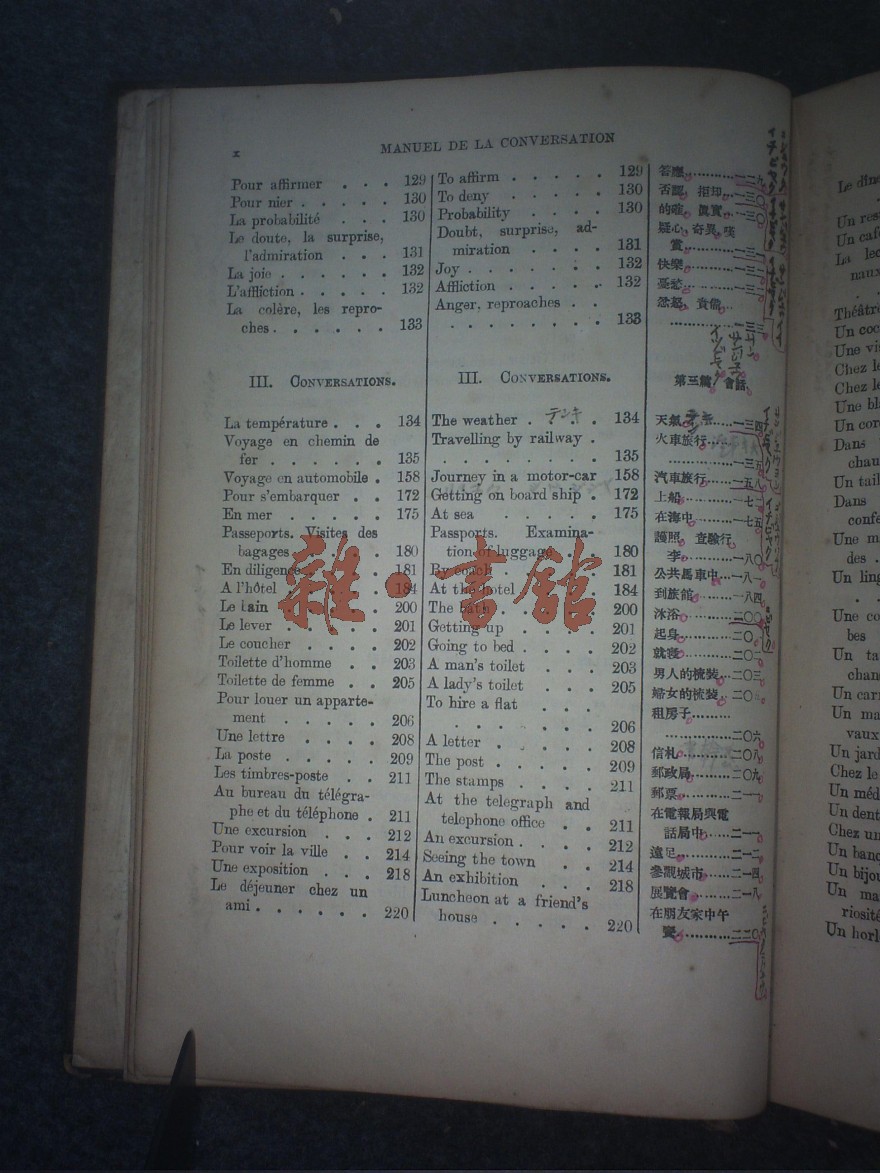 x
MANUEL DE LA CONVERSATION
Pour affirmer . . . 129
Pour nier . . . . . 130
La probabilité . . . 130
Le doute, la surprise,
l'admiration . . . 131
La joie . . . . . . 132
L'affliction . . . . . 132
La colère, les repro-
ches . . . . . . 133
III. CONVERSATIONS.
La température . . . 134
Voyage en chemin de
fer . . . . . . 135
Voyage en automobile . 158
Pour s'embarquer . . 172
En mer . . . . . 175
Passeports. Visites des
bagages . . . . 180
En diligence . . . . 181
A l'hôtel . . . . . 184
Le bain . . . . . 200
Le lever . . . . . 201
Le coucher . . . . 202
Toilette d'homme . . 203
Toilette de femme . . 205
Pour louer un apparte-
ment . . . . . 206
Une lettre . . . . 208
La poste . . . . . 209
Les timbres-poste . . 211
Au bureau du télégra-
phe et du téléphone . 211
Une excursion . . . 212
Pour voir la ville . . 214
Une exposition . . . 218
Le déjeuner chez un
ami . . . . . . 220
To affirm . . . . . 129
To deny . . . . 130
Probability . . . . 130
Doubt, surprise, ad-
miration . . . . 131
Joy . . . . . . . 132
Affliction . . . . . 132
Anger, reproaches . .
. . . . . . . . 133
III. CONVERSATIONS.
The weather . テンキ . 134
Travelling by railway .
. . . . . . . . 135
Journey in a motor-car 158
Getting on board ship . 172
At sea . . . . . 175
Passports. Examina-
tion of luggage . . 180
By coach . . . . 181
At the hotel . . . . 184
The bath . . . . 200
Getting up . . . . 201
Going to bed . . . . 202
A man's toilet . . . 203
A lady's toilet . . . 205
To hire a flat . . .
. . . . . . . 206
A letter . . . . . 208
The post . . . . . 209
The stamps . . . . 211
At the telegraph and
telephone office . . 211
An excursion . . . . 212
Seeing the town . . 214
An exhibition . . . 218
Luncheon at a friend's
house . . . . . 220
答應………一二九
否認, 拒却…一三〇
的確, 眞實…一三〇
疑心, 奇異, 嘆
賞………一三一
快樂………一三二
憂愁………一三二
忿怒, 責備…
…………一三三
第三編 會話
天氣………一三四
火車旅行……
…………一三五
汽車旅行……一五八
上船………一七二
在海中………一七五
護照, 查驗行
李………一八〇
公共馬車中…一八一
到旅館………一八四
沐浴………二〇〇
起身………二〇一
就寢………二〇二
男人的梳裝…二〇三
婦女的梳裝…二〇五
租房子………
…………二〇六
信札………二〇八
郵政局………二〇九
郵票………二一一
在電報局與電
話局中……二一一
遠足………二一二
參觀城市……二一四
展覽會………二一八
在朋友家中午
餐…………二二〇
雜·書館
Le dîn
Un res
Un caf
La lec
naux
Théâtr
Un coc
Une vi
Chez le
Chez le
Une bla
Un cor
Dans
chau
Un tail
Dans
confe
Une m
des .
Un ling
Une co
bes
Un ta
chan
Un carr
Un ma
vaux
Un jard
Chez le
Un méd
Un dent
Chez un
Un banq
Un bijou
Un ma
riosité
Un horl